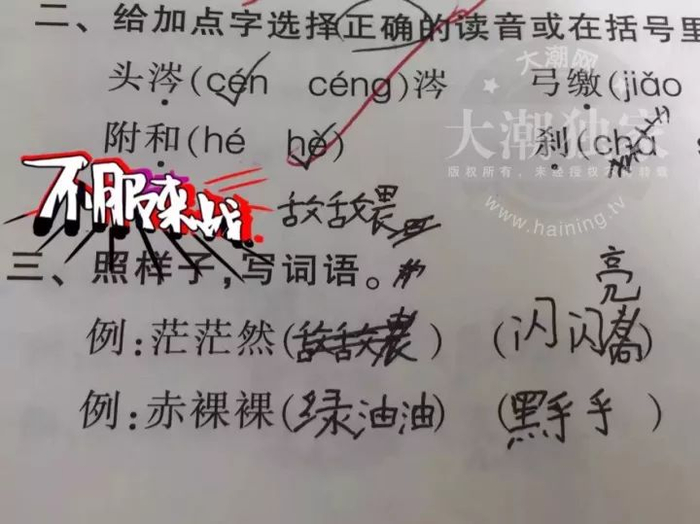 二、给加点字选择正确的读音或在括号里
头涔(cén céng)涔 弓缴(jiǎo
大潮网
大潮独家
版权所有，未经授权 转载
www.haining.tv
附和(hé hè) 刹(chà
不服来战
三、照样子,写词语。
亮
例:茫茫然( ) (闪闪 )
例:赤裸裸(绿油油) (黑乎乎)